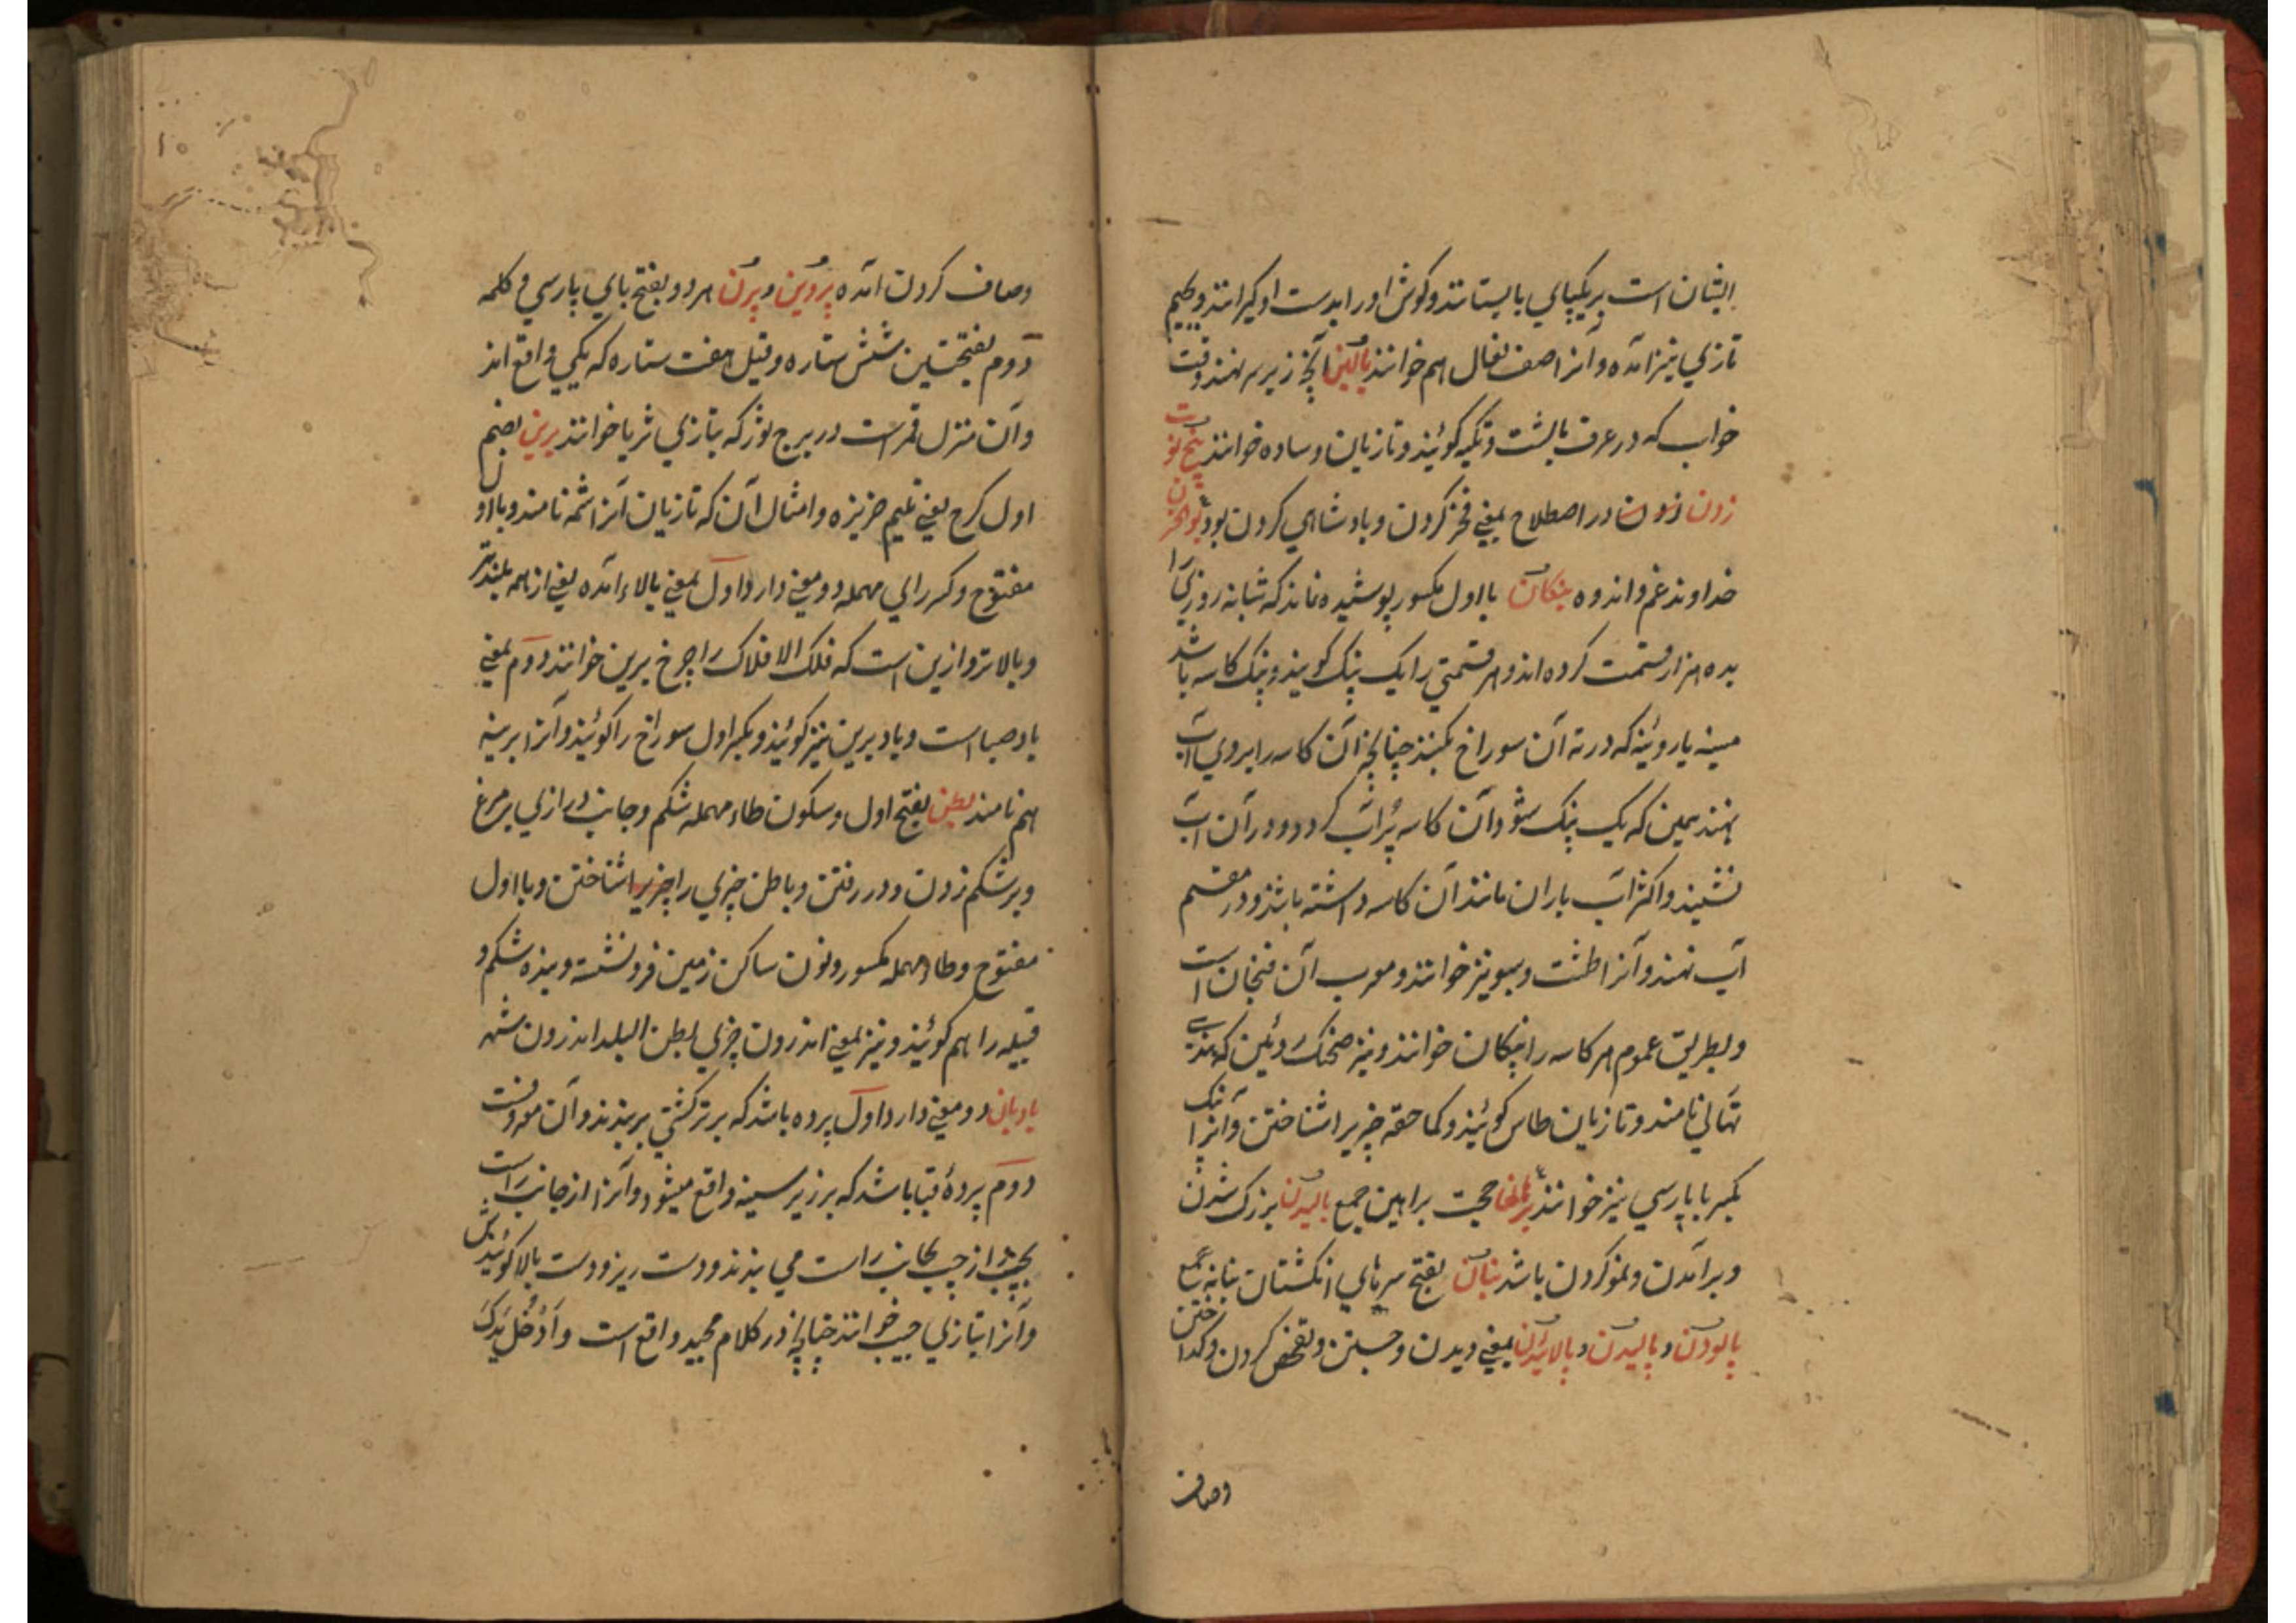 ایشان است بر یکپای بایستانند و کوش او را بدست او کیرانند و بجیم
تازی نیز آمده و آنرا صف نعال هم خوانند بالین آنچه زیر سر نهند وقت
خواب که در عرف بالشت و تکیه کویند و تازیان وساده خوانند پنج نوبت
زدن در اصطلاح بمعنی فخر کردن و پادشاهی کردن بود بوالحزن
خداوند غم و اندوه بنکان با اول مکسور پوشیده نماند که شبانه روزی را
بده هزار قسمت کرده اند و هر قسمتی را یک پنک کویند و پنک کاسه باشد
مسینه یا روئینه که در ته آن سوراخ بکنند چنانچه آن کاسه را بروی آب
نهند همین که یک پنک شود آن کاسه پُر آب کردد و در آن آب
نشیند و اکثر آب یاران مانند آن کاسه داشته باشند و در مقسم
آب نهند و آنرا طشت و سبو نیز خوانند و معرب آن فنجان است
و بطریق عموم هر کاسه را پنکان خوانند و نیز صحنک روئین که بهندی
تهالی نامند و تازیان طاس کویند و کما حقه چیزیرا شناختن و آنرا پنک
بکسر با پارسی نیز خوانند برهان حجت براهین جمع بالیدن بزرک شدن
و برآمدن و نمو کردن باشد بنان بفتح سرهای انکشتان بنانه جمع
پالودن و پالیدن و پالائیدن بمعنی دیدن و جستن و تفحص کردن و کداختن
وصاف
وصاف کردن آمده پروین و پرن هر دو بفتح بای پارسی و کلمه
دوم بفتحتین شش ستاره و قیل هفت ستاره که یکجی واقع اند
و آن منزل قمر است در برج ثور که بتازی ثریا خوانند برین بضم
اول کرچ یعنی قلیم خربزه و امثال آن که تازیان آنرا شمه نامند و با اول
مفتوح و کسر رای مهمله دو معنی دارد اول بمعنی بالاء آمده یعنی از همه بلندتر
و بالاتر و ازین است که فلک الافلاک را چرخ برین خوانند دوم بمعنی
باد صبا است و باد برین نیز کویند و بکسر اول سوراخ را کویند و آنرا برینه
هم نامند بطن بفتح اول و سکون طاء مهمله شکم و جانب درازی پر مرغ
و بر شکم زدن و در رفتن و باطن چیزی را چیزیرا شناختن و با اول
مفتوح و طاء مهمله مکسور و نون ساکن زمین فرو نشسته و بنده شکم و
قبیله را هم کویند و نیز بمعنی اندرون چیزی بطن البلد اندرون شهر
بادبان دو معنی دارد اول پرده باشد که بر تر کشتی بربندند و آن معروفست
دوم پردهٔ قبا باشد که بر زیر سینه واقع میشود و آنرا از جانب راست
بچپ و از چپ بجانب راست می بندند و دست ریز و دست بالا کویندش
و آنرا بتازی جیب خوانند چنانچه در کلام مجید واقع است وَاَدْخُلْ یَدَکَ